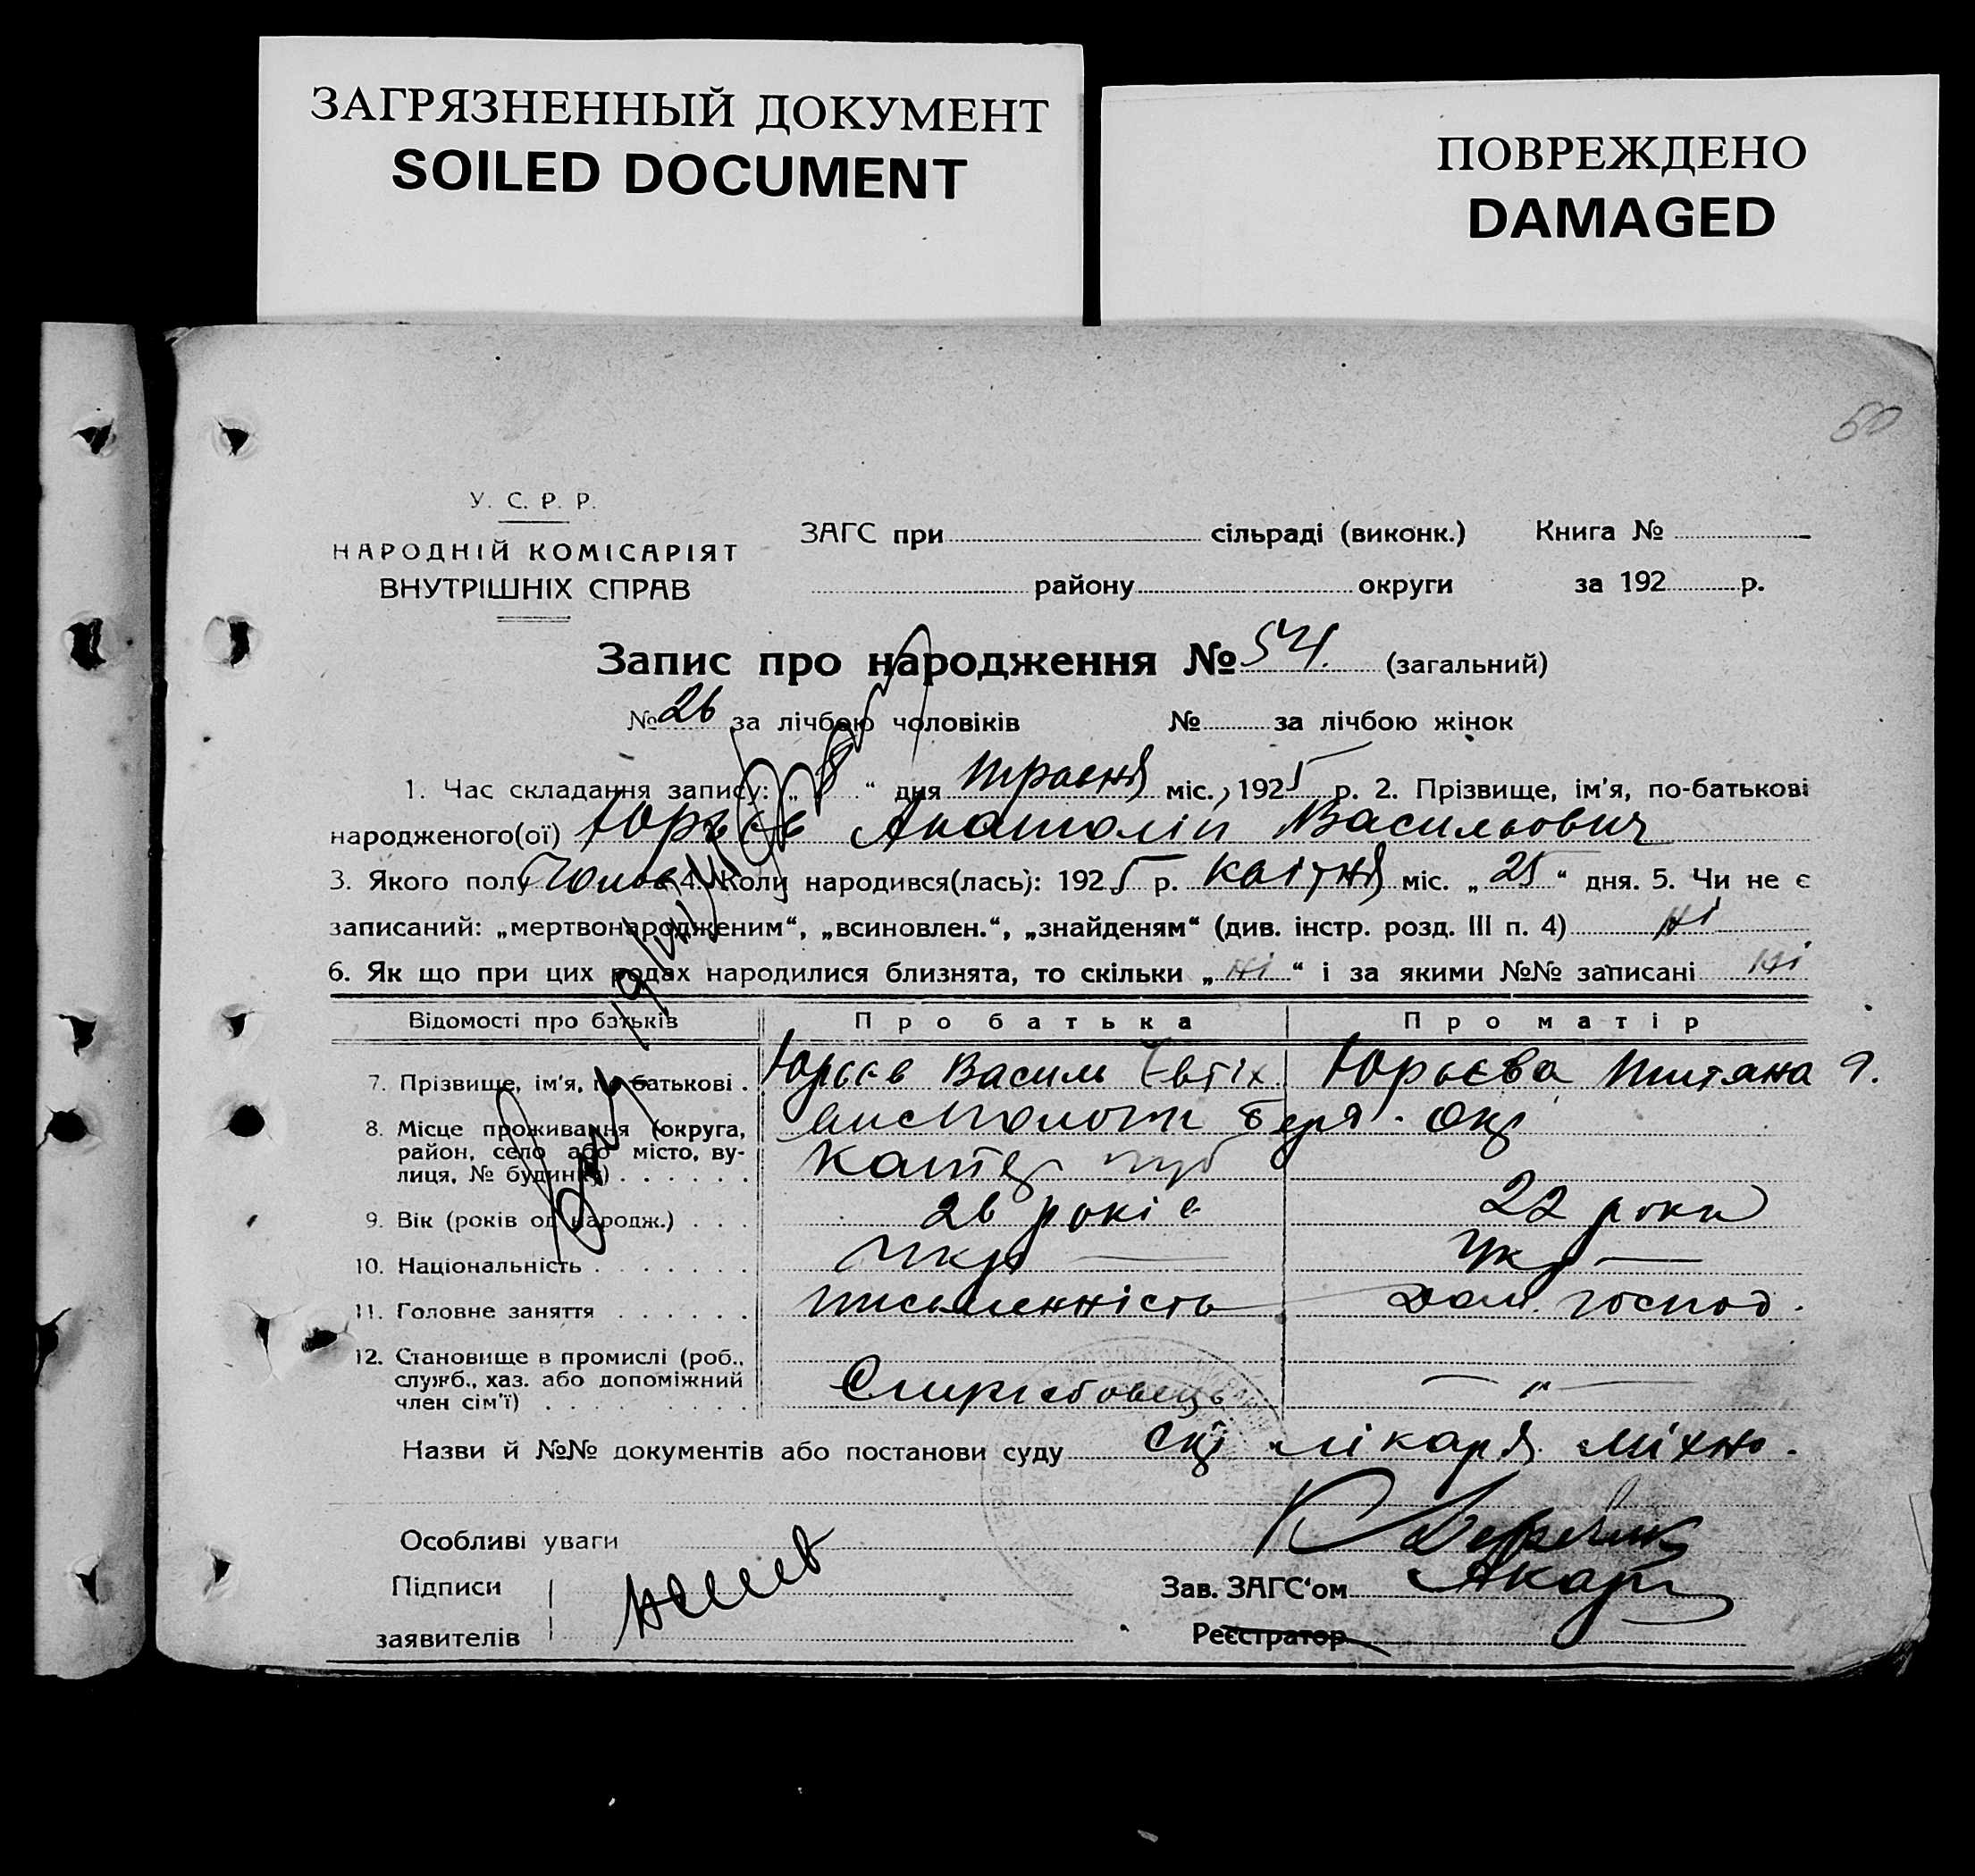 ЗАГРЯЗНЕННЫЙ ДОКУМЕНТ
SOILED DOCUMENT
ПОВРЕЖДЕНО
DAMAGED
50
У. С. Р. Р.
НАРОДНІЙ КОМІСАРІЯТ
ВНУТРІШНІХ СПРАВ
ЗАГС при сільраді (виконк.) Книга №
району округи за 192 р.
Запис про народження № 54. (загальний)
№ 26 за лічбою чоловіків № за лічбою жінок
1. Час складання запису: „ 8 “ дня травня міс., 1925 р. 2. Прізвище, ім'я, по-батькові
народженого(ої) Юрьєв Анатолій Васильович
3. Якого полу Чолов. 4. Коли народився(лась): 1925 р. квітня міс. „ 25 “ дня. 5. Чи не є
записаний: „мертвонародженим“, „всиновлен.“, „знайденям“ (див. інстр. розд. III п. 4) ні
6. Як що при цих родах народилися близнята, то скільки „ ні “ і за якими №№ записані ні
Відомості про батьків Про батька Про матір
7. Прізвище, ім'я, по-батькові . Юрьєв Василь Євтіх. Юрьєва Титяна Я.
8. Місце проживання (округа,
район, село або місто, ву-
лиця, № будинку)
9. Вік (років од народж.) . . . 26 років 22 роки
10. Національність . . . . . . . Укр Укр
11. Головне заняття . . . . . . письменність Дом. господ.
12. Становище в промислі (роб.,
служб., хаз. або допоміжний
член сім'ї) . . . . . . . . . — „ —
Назви й №№ документів або постанови суду лікаря Міхно.
Особливі уваги
Підписи
заявителів
Зав. ЗАГС‘ом
Реєстратор